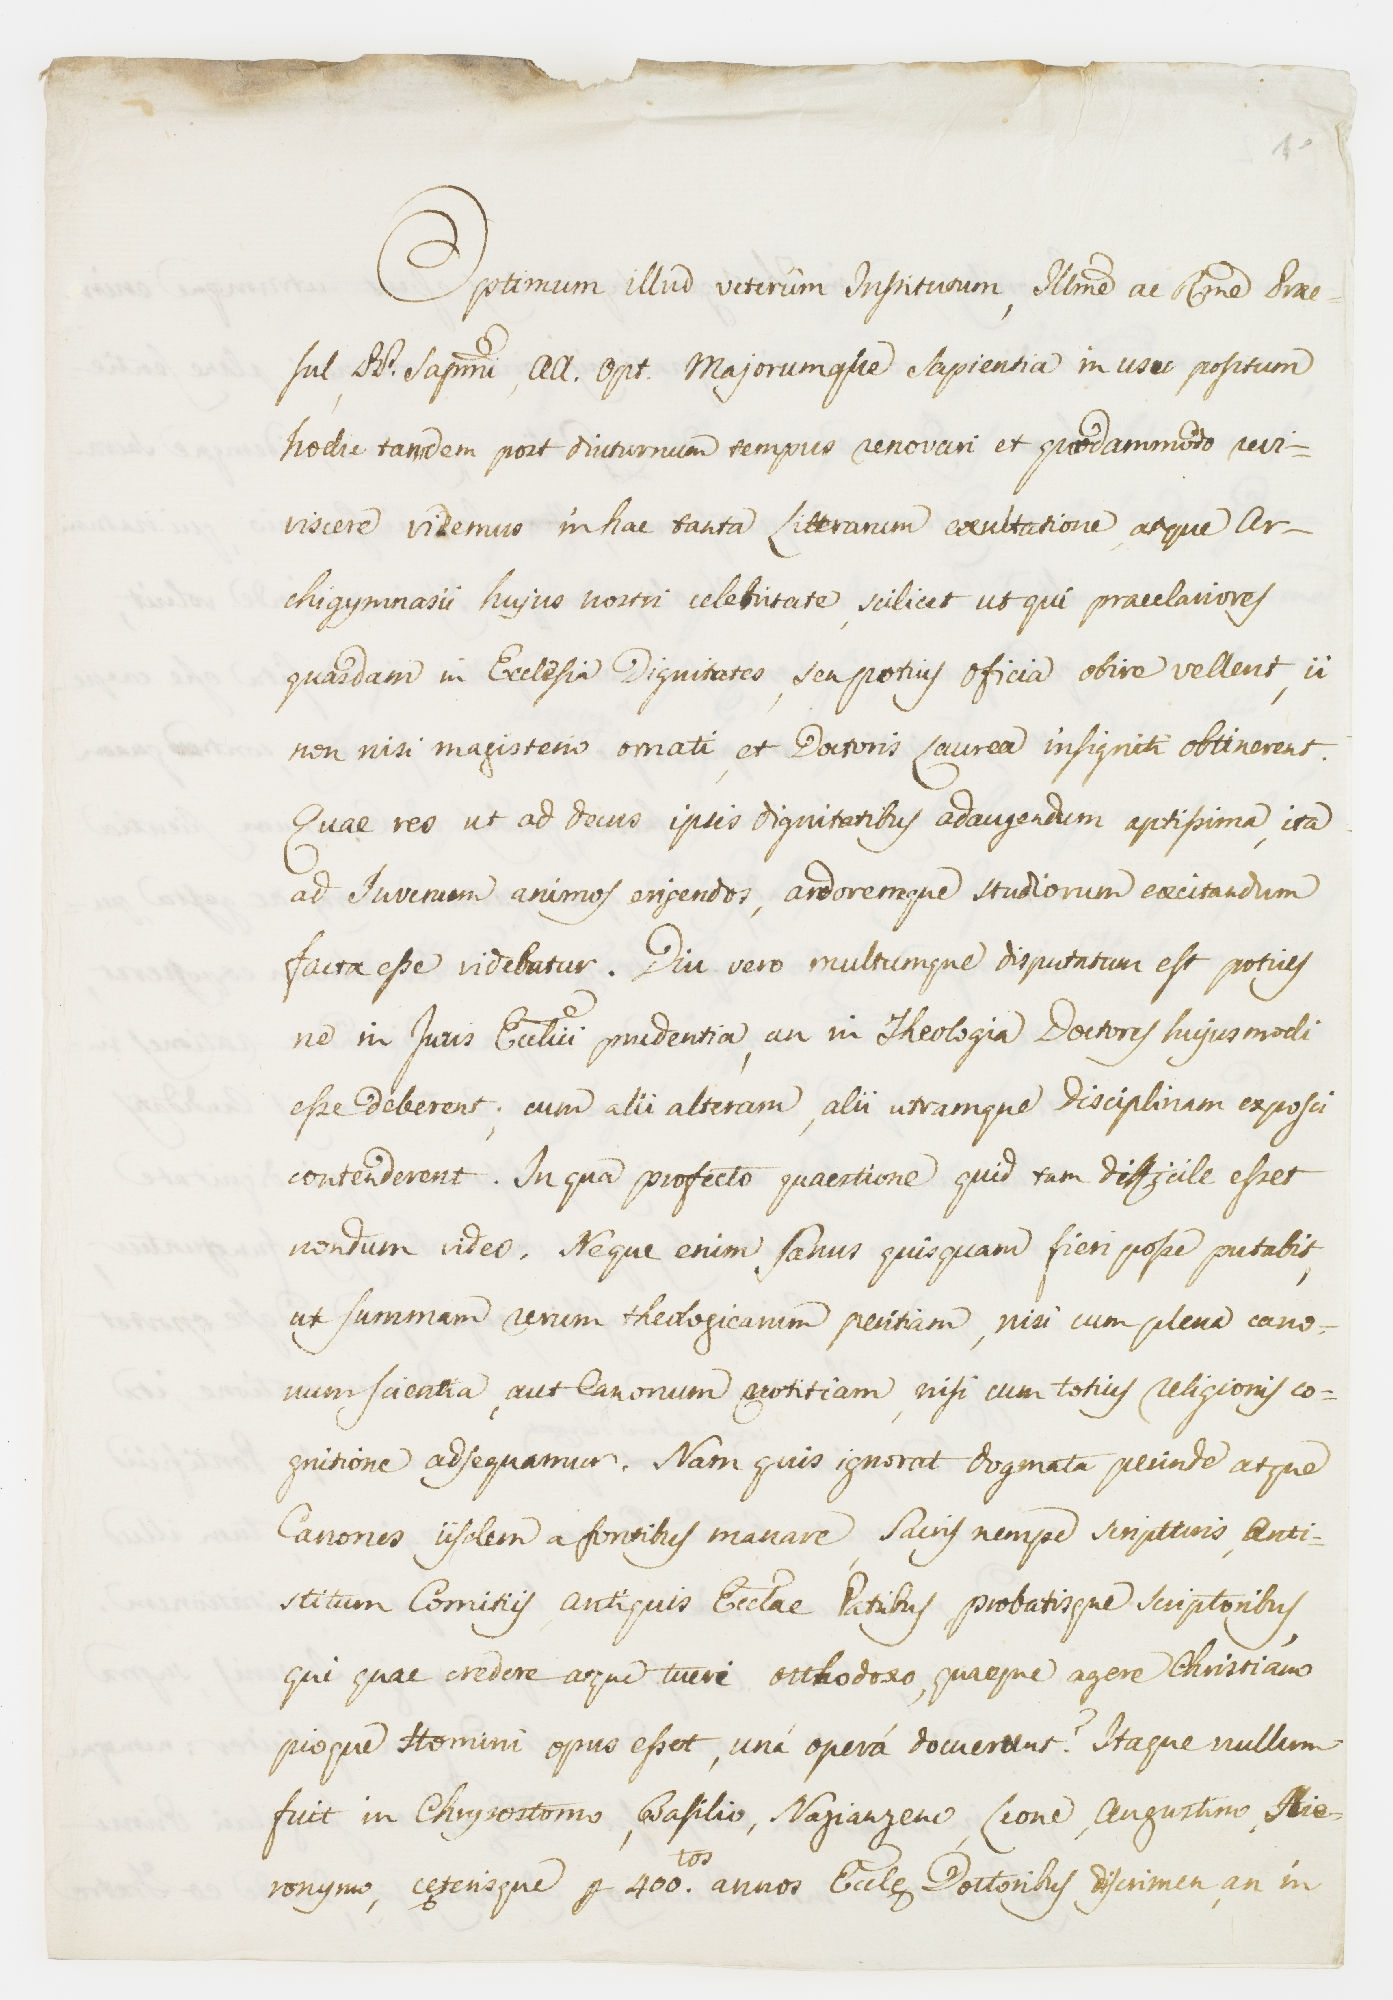 1º
Optimum illud veterum Institutum, Illme ac Rme Prae-
sul, PP. Sapmi, AA. Opt. Majorumque sapientia in usu positum
hodie tandem post diuturnum tempus renovari et quodammodo revi-
viscere videmus in hac tanta Litterarum exultatione, atque Ar-
chigymnasii hujus nostri celebritate, scilicet ut qui praeclariores
quasdam in Ecclesia Dignitates, seu potius oficia obire vellent, ii
non nisi magisterio ornati, et Doctoris Laurea insigniti obtinerent.
Quae res ut ad decus ipsis dignitatibus adaugendum aptissima, ita
ad Juvenum animos erigendos, ardoremque studiorum excitandum
facta esse videbatur. Diu vero multumque disputatum est potius
ne in Juris Ecclici prudentia, an in Theologia Doctores hujusmodi
esse deberent; cum alii alteram, alii utramque disciplinam exposci
contenderent. In qua profecto quaestione quid tam difficile esset
nondum video. Neque enim sanus quisquam fieri posse putabit,
ut summam rerum theologicarum peritiam, nisi cum plena cano-
num scientia, aut Canonum notitiam, nisi cum totius religionis co-
gnitione adsequamur. Nam quis ignorat dogmata perinde atque
Canones iisdem a fontibus manare, Sacris nempe scripturis, Anti-
stitum Comitiis, antiquis Ecclae Patribus, probatisque scriptoribus,
qui quae credere atque tueri orthodoxo, quaeque agere Christiano
pioque Homini opus esset, unâ operâ docuerunt? Itaque nullum
fuit in Chrysostomo, Basilio, Nazianzeno, Leone, Augustino, Hie-
ronymo, cęterisque p 400.tos annos Ecclę Doctoribus discrimen, an in